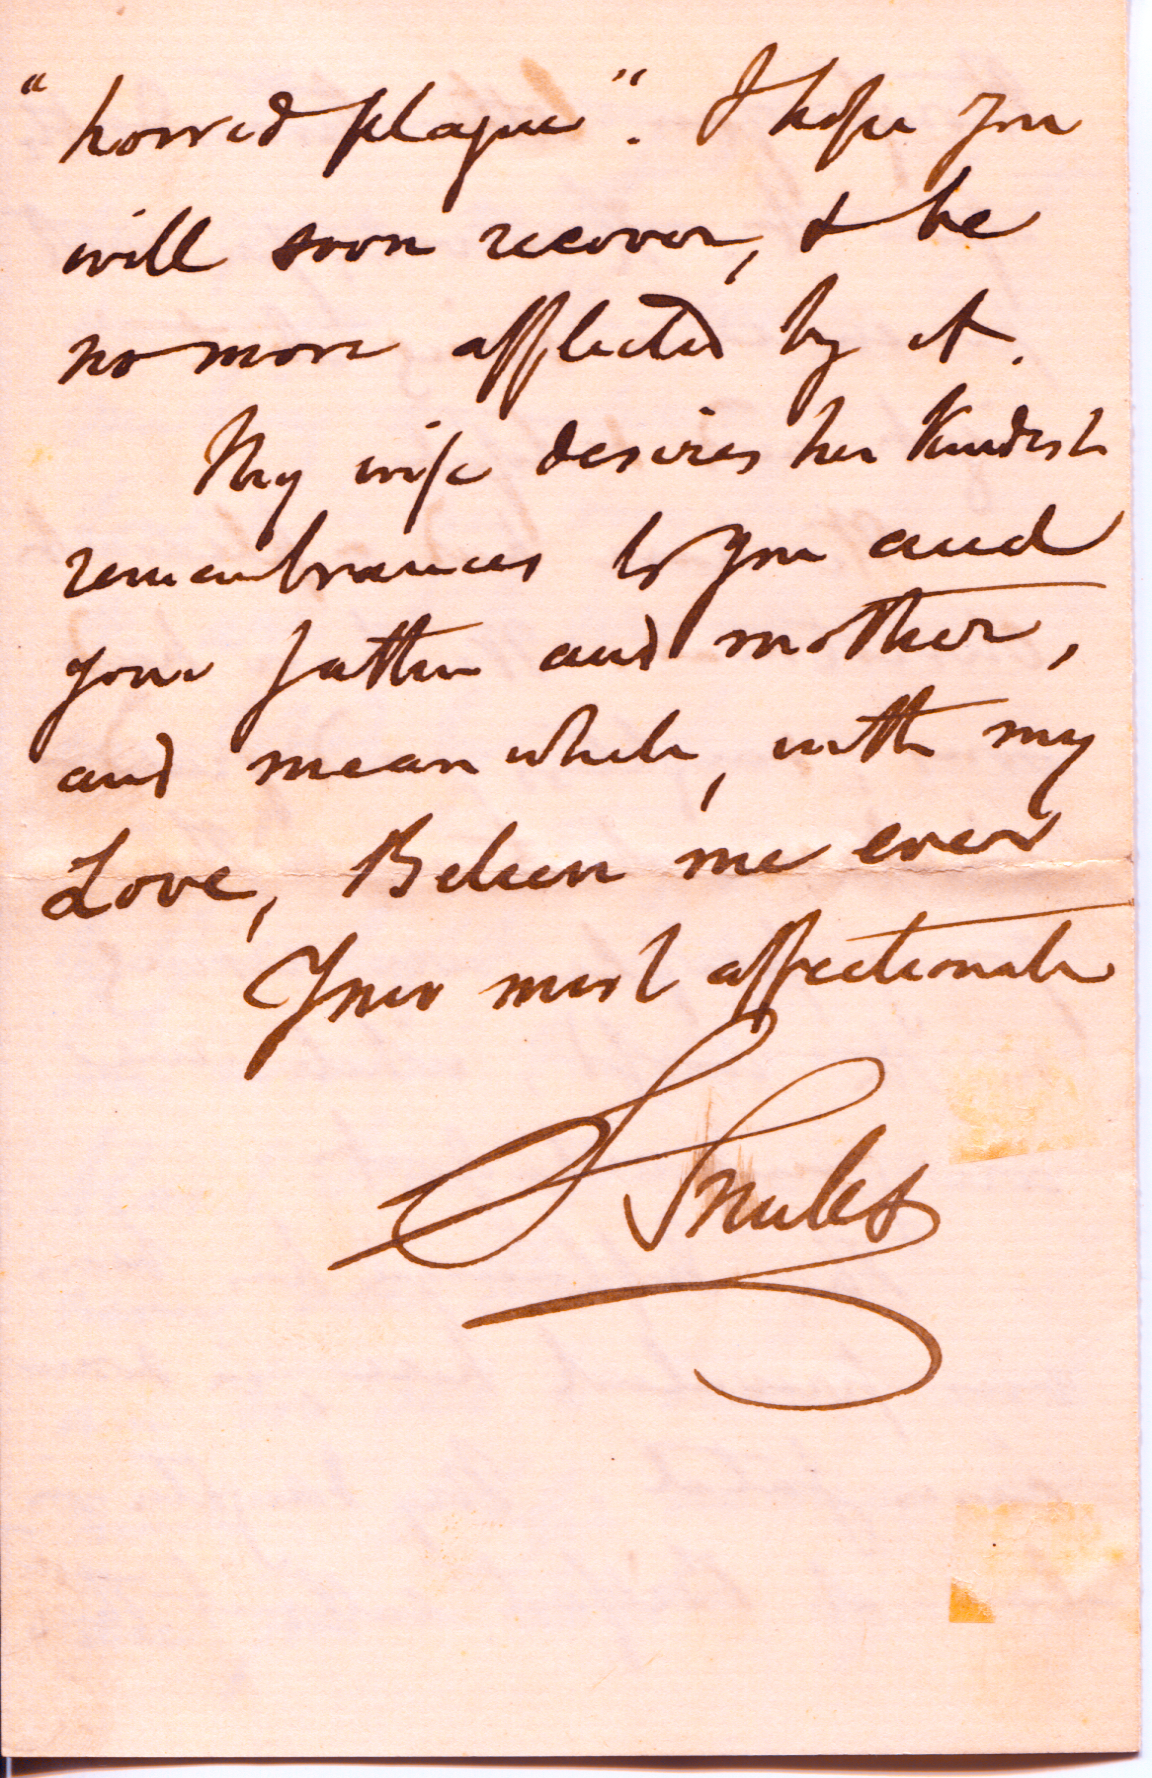 "horrid plague". I hope you
will soon recover, & be
no more afflicted by it.
My wife desires her kindest
remembrances to you and
your father and mother,
and meanwhile, with my
Love, Believe me ever
Your most affectionate
S Smiles